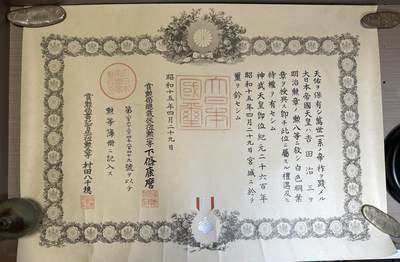 天佑ヲ保有シ萬世一系ノ帝祚ヲ踐タル
大日本帝國天皇ハ吉田治三ヲ
明治勲章ノ勲八等ニ敍シ白色桐葉
章ヲ授與ス即チ此位ニ屬スル禮遇及ヒ
特權ヲ有セシム
神武天皇即位紀元二千六百年
昭和十五年四月二十九日宮城ニ於テ
璽ヲ鈐セシム
大日本國璽
昭和十五年四月二十九日
賞勲局總裁 下條康麿
號ヲ以テ
勲等簿册ニ記入ス
賞勲局書記官 村田八千穂